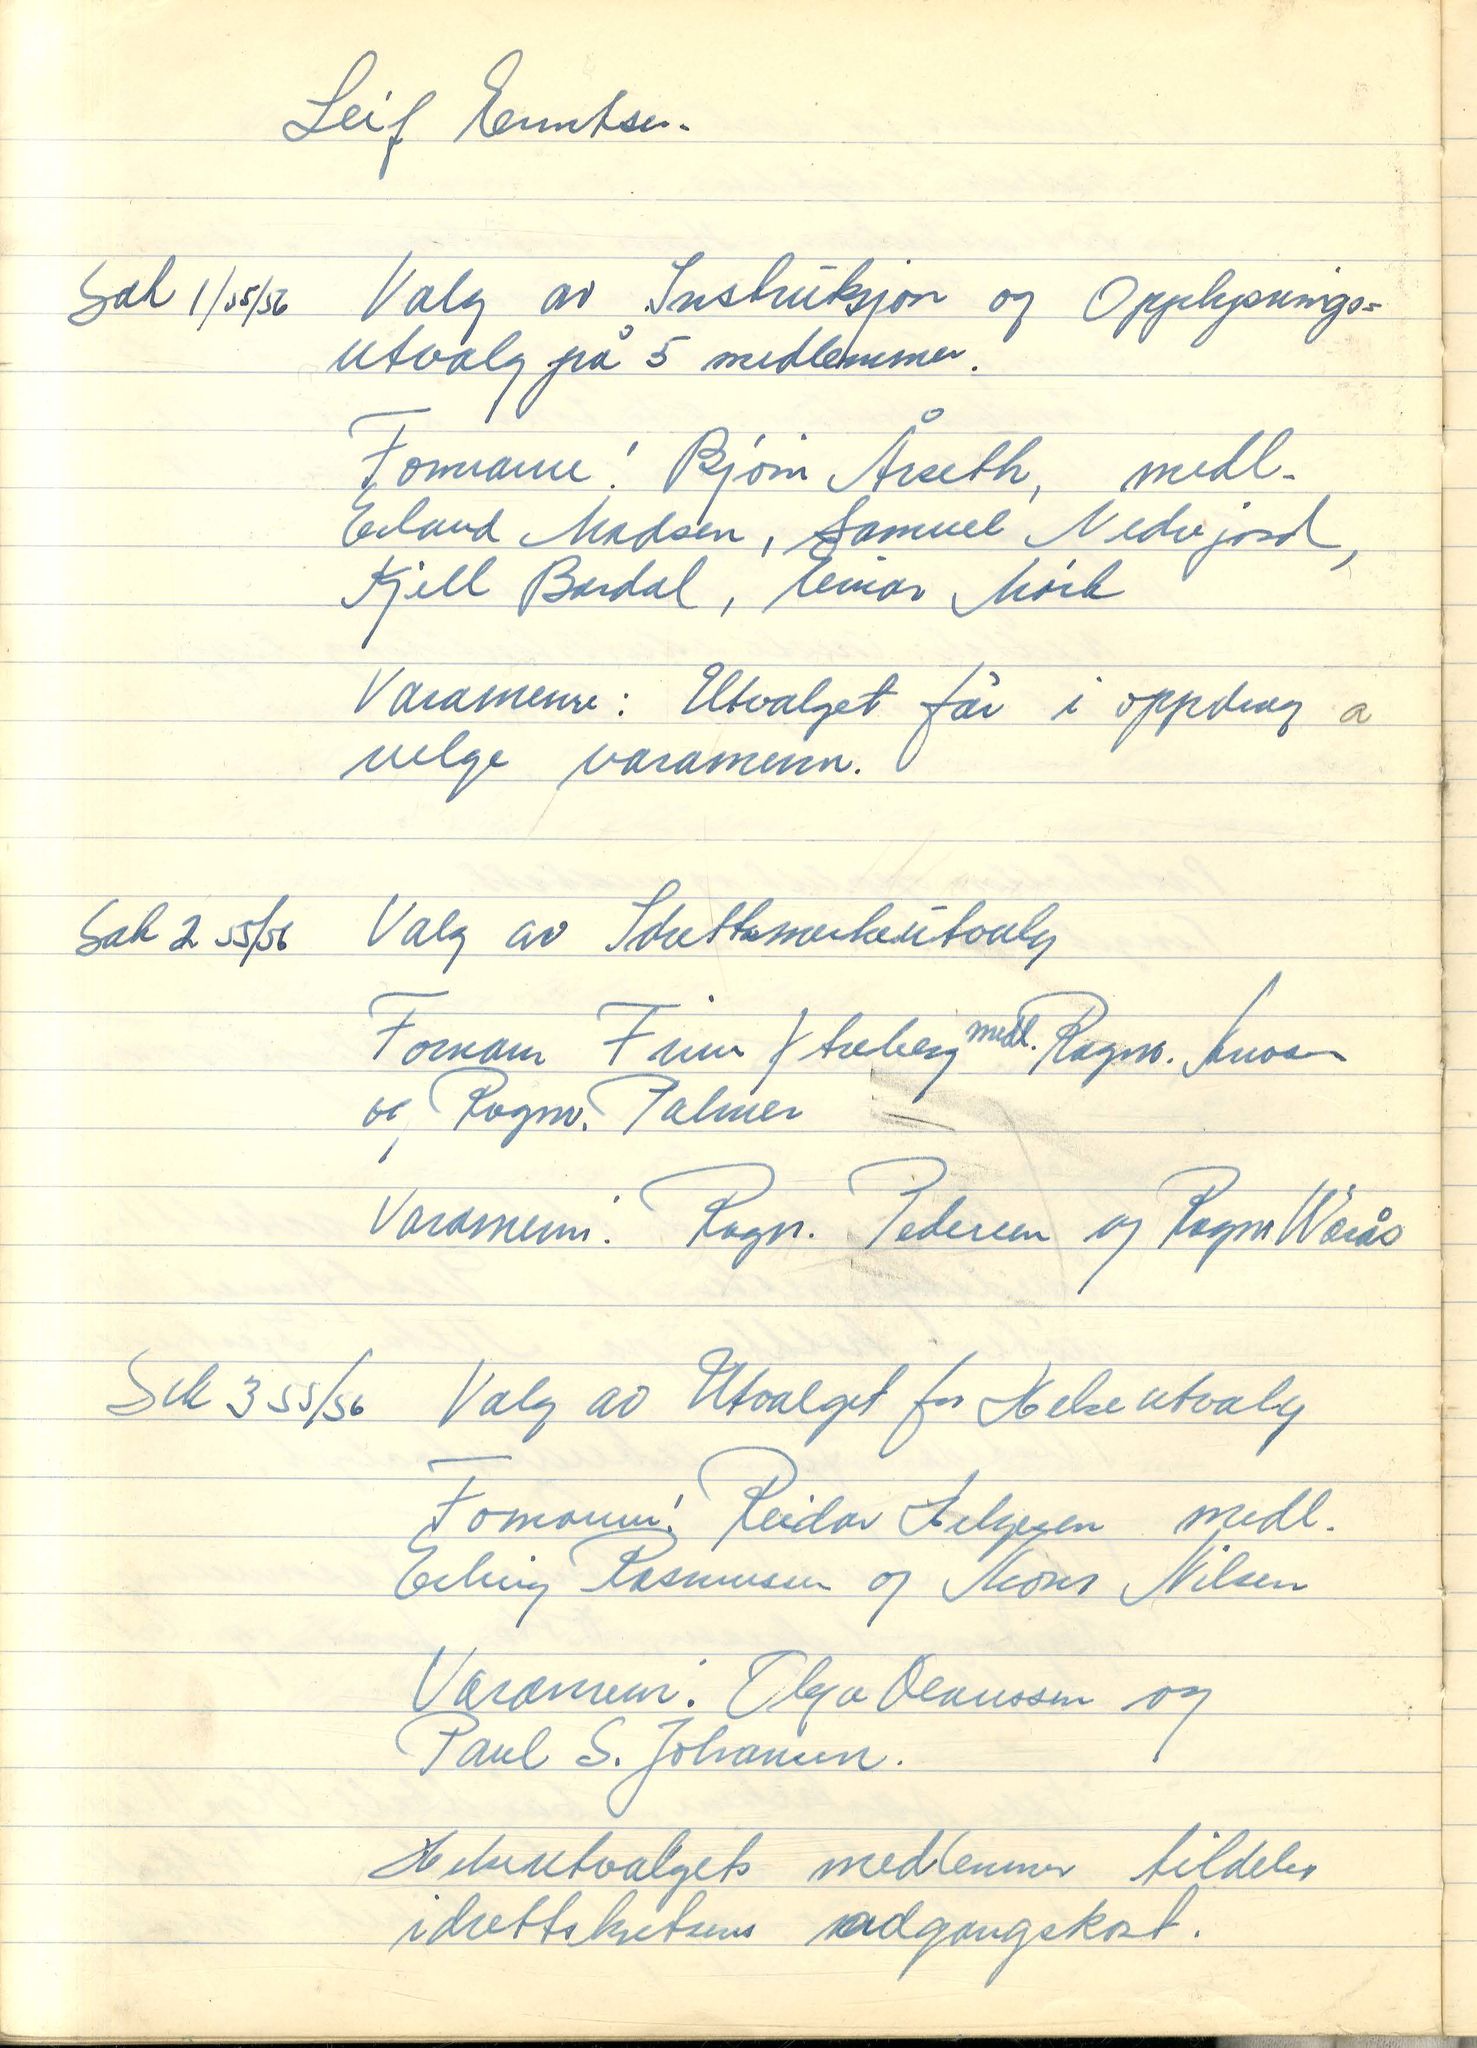 Leif Erntsen.
Sak 1/55/56 Valg av Instruksjon og Opplysnings=
utvalg på 5 medlemmer.
Formann: Bjørn Årseth, medl.
Erland Madsen, Samuel Nedrejord,
Kjell Bardal, Einar Mørk
Varamenn: Utvalget får i oppdrag a
velge varamenn.
Sak 2 55/56 Valg av Idrettsmerkeutvalg
Formann Finn medl. Ragnv.
og Ragnv. Palmer
Varamenn: Ragn. Pedersen og Ragnv Wærås
Sak 3 55/56 Valg av Utvalget for Helseutvalg
Formann: Reidar Helgesen medl.
Erling Rasmussen og Mons Nilsen
Varamenn: Olga Olaussen og
Paul S. Johansen.
Helseutvalgets medlemmer tildeles
idrettskretsens adgangskort.